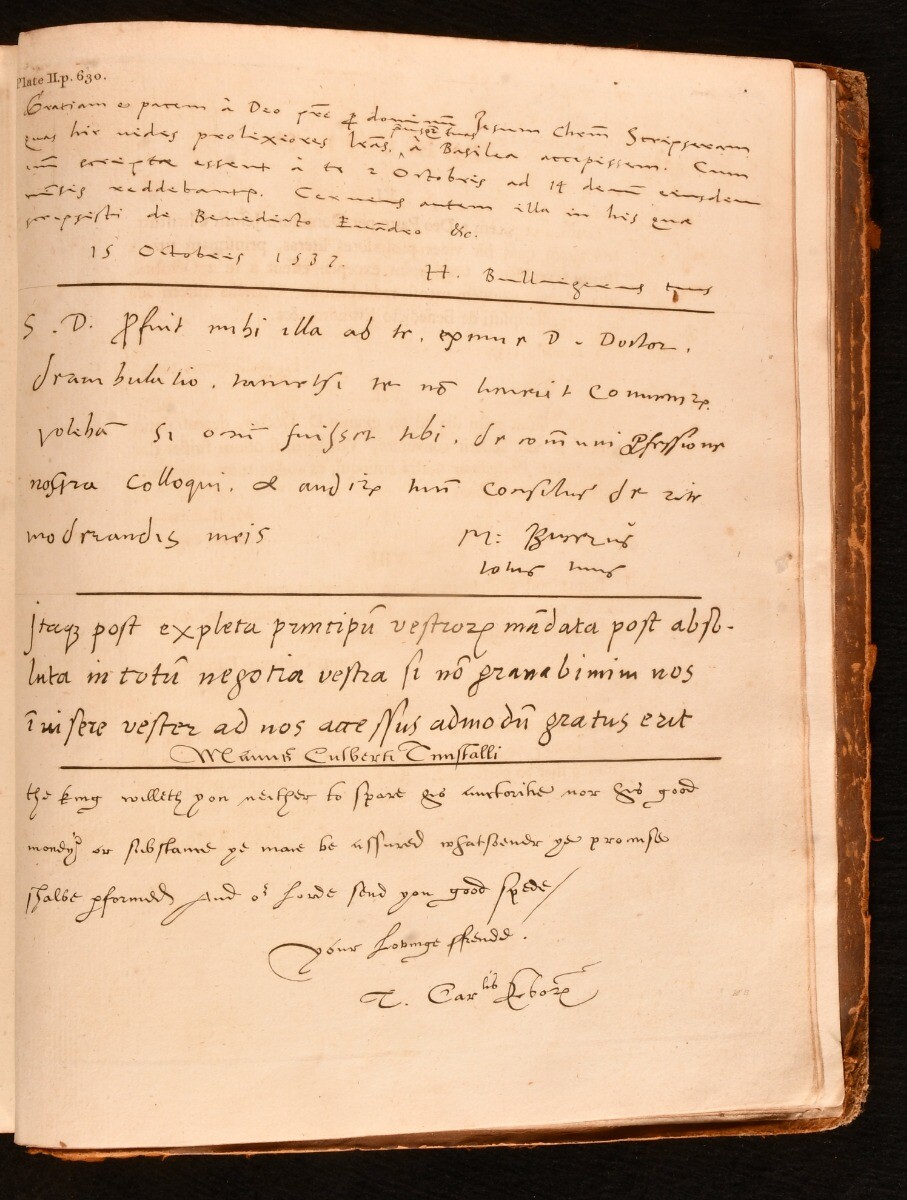 Plate II. p. 630.
Gratiam & pacem à Deo pr̃e & dominũ Jesum Chrm̃ Scripseram
quas hic vides prolixiores lrãs. à Basilea accepissem. Cum
priusq̃ tuas
scriptæ essent à te 2 Octobris ad 14 demũ eiusdem
mẽsis reddebantur. Cernens autem illa in his quæ
scripsisti de Benedicto Euãdro &c.
15 Octobris 1537
H. Bullingerus tuus
S. D. ꝓfuit mihi illa ab te, eximie D. Doctor,
deambulatio, tametsi te nõ
volebã si ociũ fuisset tibi, de com̃uni ꝓfessione
nostra colloqui, & audire tuũ consiliũ de rite
moderandis meis
M: Bucerus̃
totus tuus
Itaqꝫ post expleta principũ vestrorꝝ mãdata post abso-
luta in totũ negotia vestra si nõ gravabimini nos
ĩvisere vester ad nos accessus admodũ gratus erit
Manus Cutberti Tunstalli
the king willeth you neither to spare his auctoritie nor his good
money or substaunce ye maie be assured whatsoeuer ye promise
shalbe ꝑformed And oʳ Lorde send you good spede/
your lovinge ffrende.
T. Carˡⁱˢ Eborꝝ